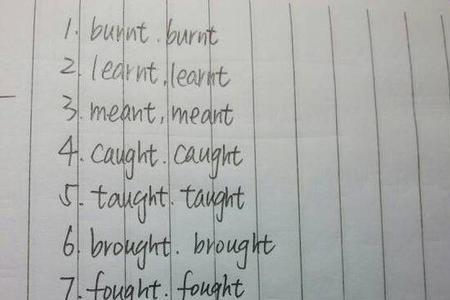 1. burnt. burnt
2. learnt, learnt
3. meant, meant
4. caught. caught
5. taught. taught
6. brought. brought
7. fought. fought